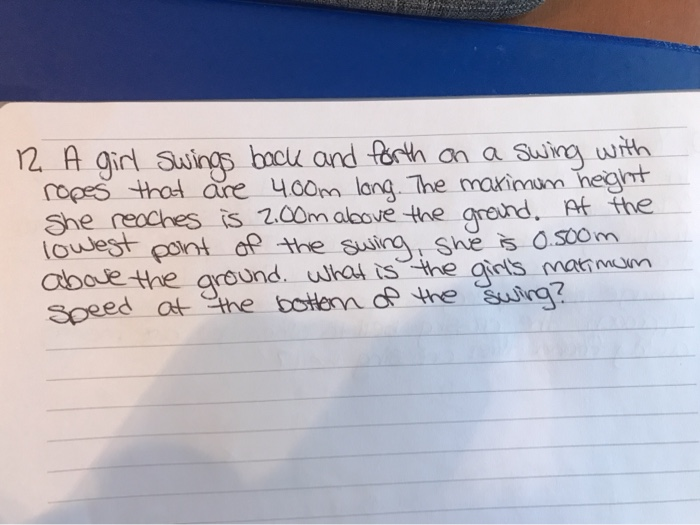 12. A girl swings back and forth on a swing with
ropes that are 4.00m long. The maximum height
she reaches is 2.00m above the ground. At the
lowest point of the swing, she is 0.500m
above the ground. What is the girl's maximum
speed at the bottom of the swing?